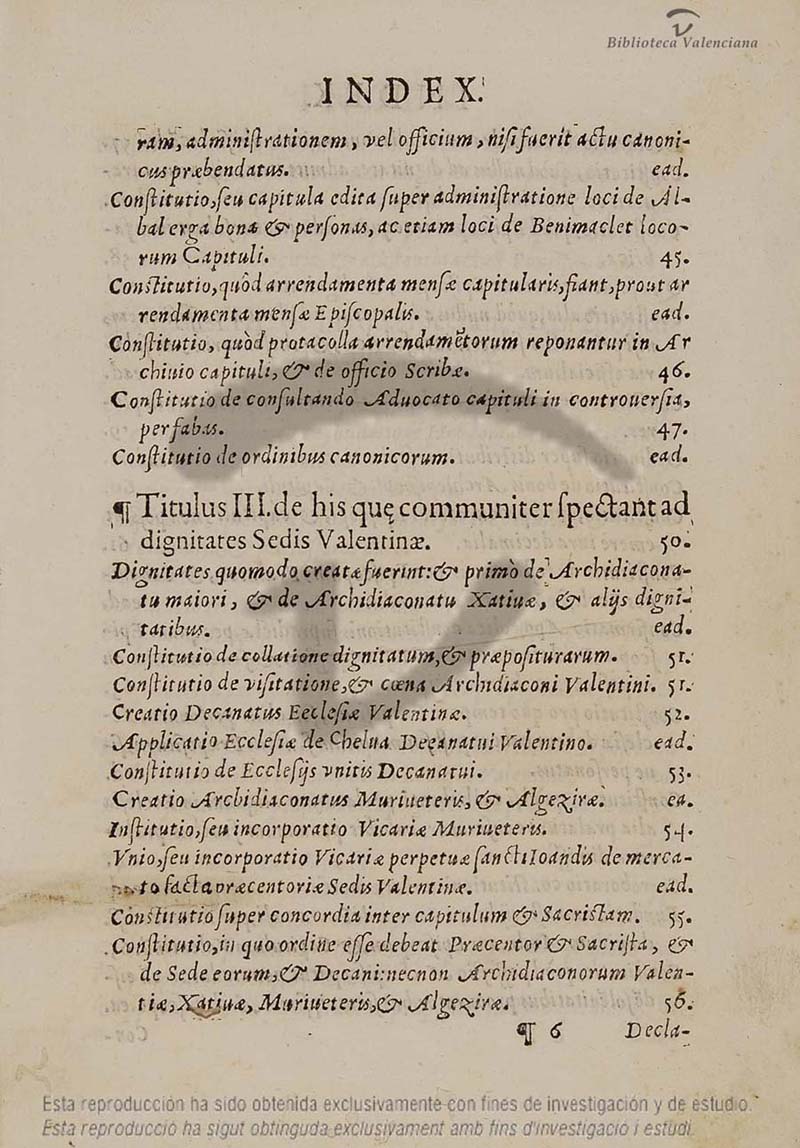 Biblioteca Valenciana
INDEX.
ram, adminiſtrationem, vel officium, niſi fuerit actu canoni-
cus præbendatus. ead.
Conſtitutio, ſeu capitula edita ſuper adminiſtratione loci de Al-
bal erga bona & perſonas, ac etiam loci de Benimaclet loco-
rum Capituli. 45.
Conſtitutio, quòd arrendamenta menſæ capitularis, fiant, prout ar
rendamenta menſæ Epiſcopalis. ead.
Conſtitutio, quòd protacolla arrendamẽtorum reponantur in Ar
chiuio capituli, & de officio Scribæ. 46.
Conſtitutio de conſultando Aduocato capituli in controuerſia,
per fabas. 47.
Conſtitutio de ordinibus canonicorum. ead.
¶ Titulus III. de his quę communiter ſpectant ad
dignitates Sedis Valentinæ. 50.
Dignitates quomodo creatæ fuerint: & primò de Archidiacona-
tu maiori, & de Archidiaconatu Xatiuæ, & alijs digni-
tatibus. ead.
Conſtitutio de collatione dignitatum, & præpoſiturarum. 51.
Conſtitutio de viſitatione, & cœna Archidiaconi Valentini. 51.
Creatio Decanatus Eccleſiæ Valentinæ. 52.
Applicatio Eccleſiæ de Chelua Decanatui Valentino. ead.
Conſtitutio de Eccleſijs vnitis Decanatui. 53.
Creatio Archidiaconatus Muriueteris, & Algeziræ. ea.
Inſtitutio, ſeu incorporatio Vicariæ Muriueteris. 54.
Vnio, ſeu incorporatio Vicariæ perpetuæ ſancti Ioannis de merca-
to facta præcentoriæ Sedis Valentinæ. ead.
Conſtitutio ſuper concordia inter capitulum & Sacriſtam. 55.
Conſtitutio, in quo ordine eſſe debeat Præcentor & Sacriſta, &
de Sede eorum, & Decani: necnon Archidiaconorum Valen-
tiæ, Xatiuæ, Muriueteris, & Algeziræ. 56.
¶ 6 Decla-
Esta reproducción ha sido obtenida exclusivamente con fines de investigación y de estudio.
Esta reproducció ha sigut obtinguda exclusivament amb fins d'investigació i estudi